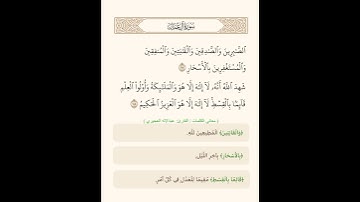 سُورَةُ آلِ عِمۡرَانَ
ٱلصَّٰبِرِينَ وَٱلصَّٰدِقِينَ وَٱلۡقَٰنِتِينَ وَٱلۡمُنفِقِينَ
وَٱلۡمُسۡتَغۡفِرِينَ بِٱلۡأَسۡحَارِ ١٧
شَهِدَ ٱللَّهُ أَنَّهُۥ لَآ إِلَٰهَ إِلَّا هُوَ وَٱلۡمَلَٰٓئِكَةُ وَأُوْلُواْ ٱلۡعِلۡمِ
قَآئِمَۢا بِٱلۡقِسۡطِۚ لَآ إِلَٰهَ إِلَّا هُوَ ٱلۡعَزِيزُ ٱلۡحَكِيمُ ١٨
( معاني الكلمات - القارئ: عبدالله
﴿وَالْقَانِتِينَ﴾ الْمُطِيعِينَ لِلَّهِ.
﴿بِالْأَسْحَارِ﴾ بِآخِرِ اللَّيْلِ.
﴿قَائِمًا بِالْقِسْطِ﴾ مُقِيمًا لِلْعَدْلِ فِي كُلِّ أَمْرٍ.